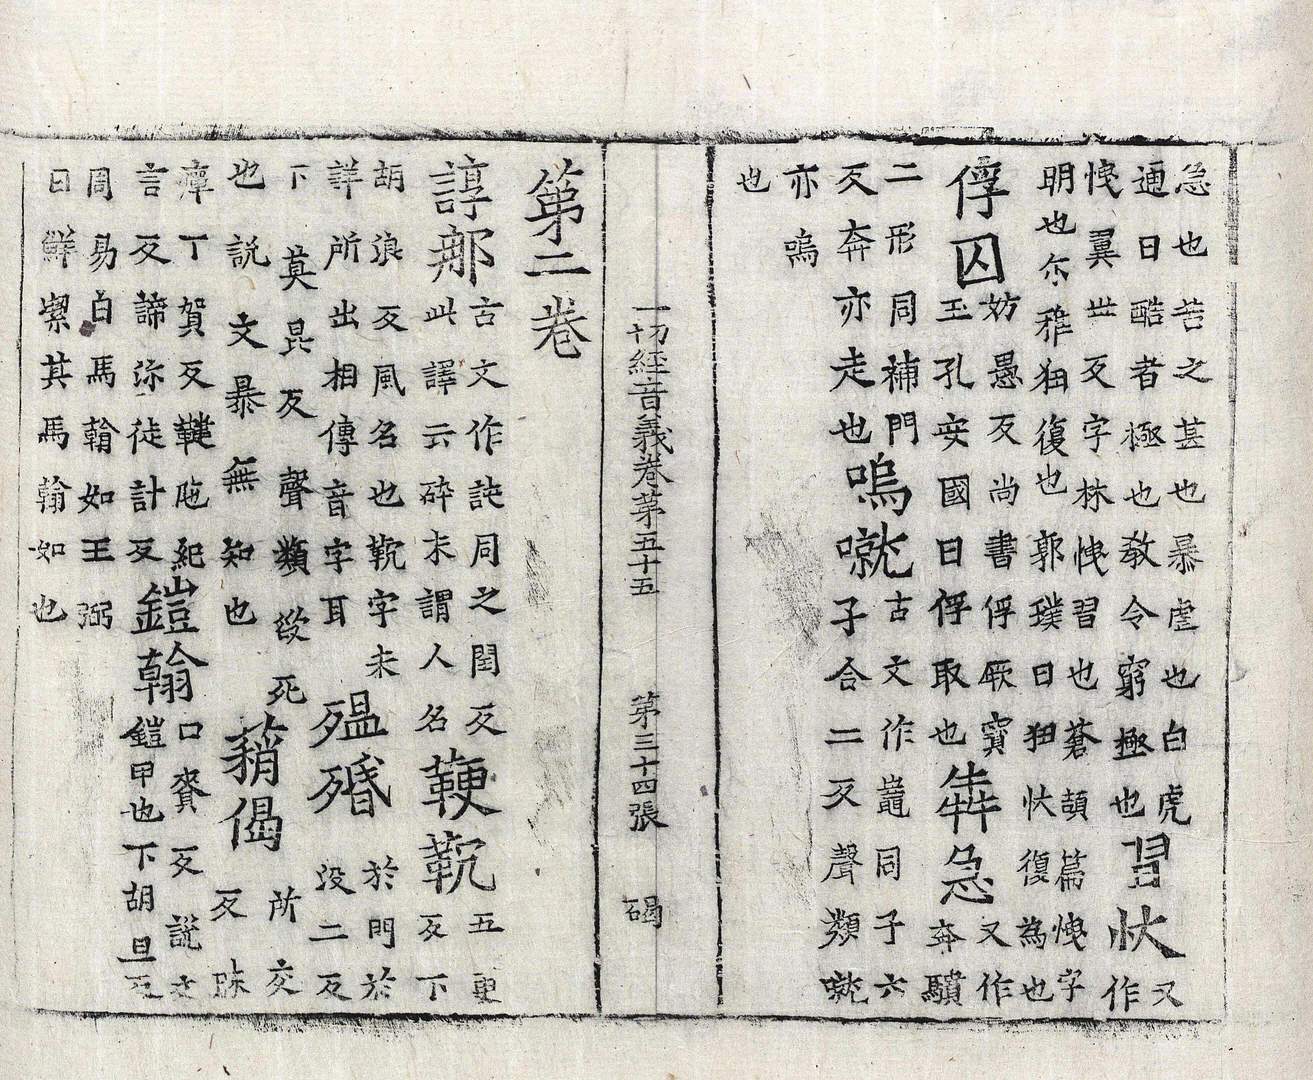 急也苦之甚也暴虐也白虎
通曰酷者極也敎令窮極也
習忕
又
作
翼世反字林習也蒼頡篇字
明也尒雅狃復也郭璞曰狃忕復為也
俘囚
妨愚反尚書俘厥寶
玉孔安國曰俘取也
犇急
又作
奔驞
二形同補門
反奔亦走也
嗚噈
古文作同子六
子合二反聲類噈
亦嗚
也
一切經音義卷第五十五 第三十四張 碣
第二卷
諄那
古文作訰同之閏反
此譯云碎末謂人名
鞕䩑
五更
反下
胡浪反風名也䩑字未
詳所出相傳音字耳
殟殙
於門於
没二反
下莫昆反聲類欲死
也說文暴無知也
䔠偈
所交
反昧
瘴丁賀反鞬陁紀
言反諦沵徒計反
鎧翰
口賚反說文
鎧甲也下胡旦反
周易白馬翰如王弼
曰鮮絜其馬翰如也